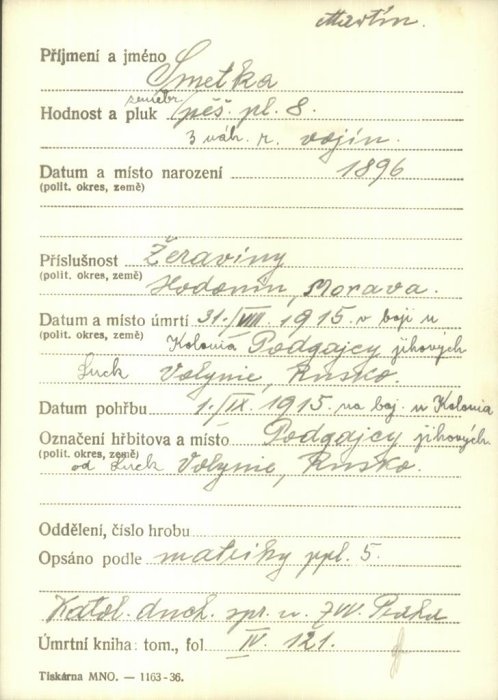 Martin.
Příjmení a jméno Smetka
Hodnost a pluk zeměbr. pěš. pl. 8.
3 náh. r. vojín.
Datum a místo narození 1896
(polit. okres, země)
Příslušnost Žeraviny
(polit. okres, země) Hodonín, Morava.
Datum a místo úmrtí 31./VIII. 1915 v boji u
(polit. okres, země) Kolonia Podgajcy jihových
Luck Volynie, Rusko.
Datum pohřbu 1./IX. 1915. na boj. u Kolonia
Označení hřbitova a místo Podgajcy jihových.
(polit. okres, země) od Luck Volynie, Rusko.
Oddělení, číslo hrobu
Opsáno podle matriky ppl. 5.
Katol. duch. spr. u ZVV. Praha
Úmrtní kniha: tom., fol. IV. 121.
Tiskárna MNO. — 1163-36.